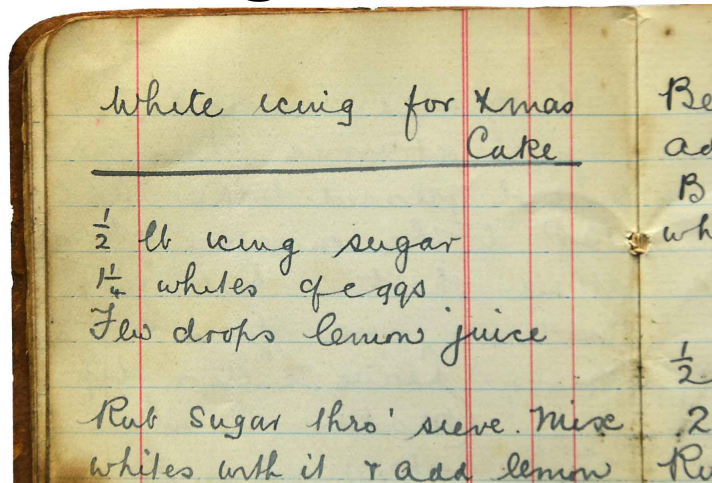 White icing for Xmas
Cake
½ lb icing sugar
1¼ whites of eggs
Few drops lemon juice
Rub Sugar thro' sieve. Mix
whites with it & add lemon
Be
ad
B
wh
½
2
Ru